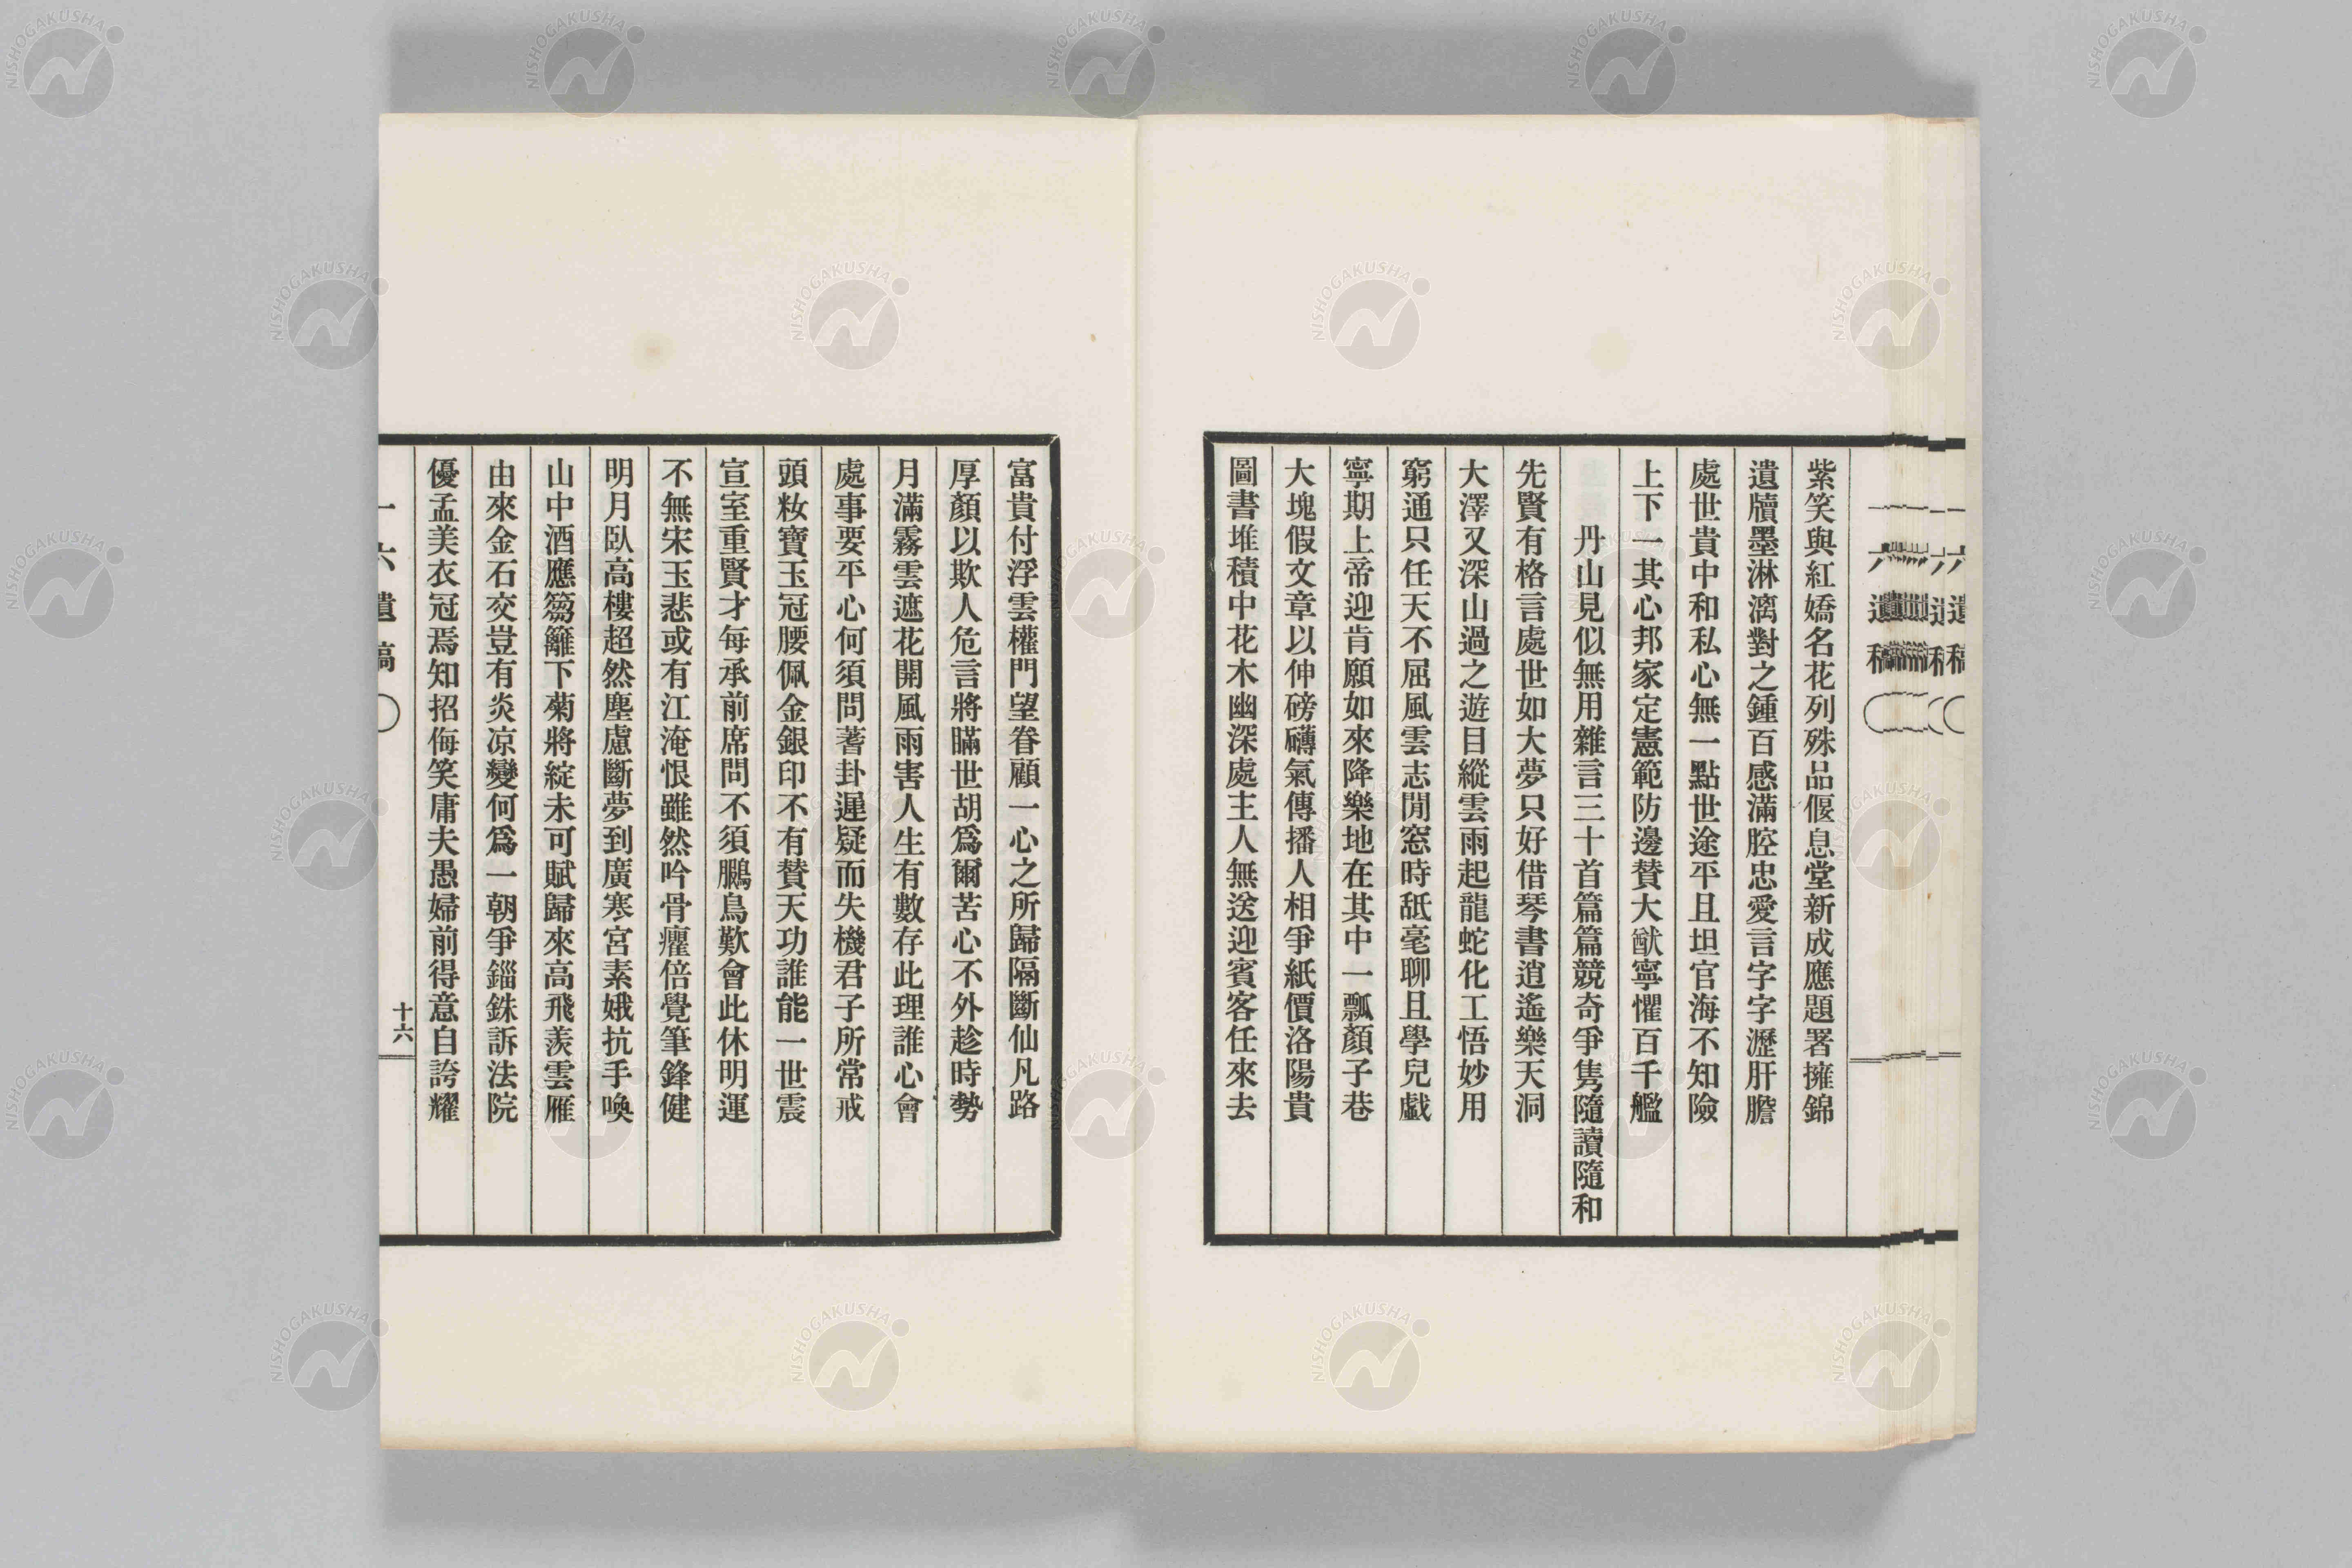 紫笑與紅嬌名花列殊品偃息堂新成應題署擁錦
遺牘墨淋漓對之鍾百感滿腔忠愛言字字瀝肝膽
處世貴中和私心無一點世途平且坦官海不知險
上下一其心邦家定憲範防邊贊大猷寧懼百千艦
丹山見似無用雜言三十首篇篇競奇爭雋隨讀隨和
先賢有格言處世如大夢只好借琴書逍遙樂天洞
大澤又深山過之遊目縱雲雨起龍蛇化工悟妙用
窮通只任天不屈風雲志閒窓時舐毫聊且學兒戲
寧期上帝迎肯願如來降樂地在其中一瓢顏子巷
大塊假文章以伸磅礴氣傳播人相爭紙價洛陽貴
圖書堆積中花木幽深處主人無送迎賓客任來去
富貴付浮雲權門望眷顧一心之所歸隔斷仙凡路
厚顏以欺人危言將瞞世胡爲爾苦心不外趁時勢
月滿霧雲遮花開風雨害人生有數存此理誰心會
處事要平心何須問蓍卦遲疑而失機君子所常戒
頭妝寶玉冠腰佩金銀印不有贊天功誰能一世震
宣室重賢才每承前席問不須鵩鳥歎會此休明運
不無宋玉悲或有江淹恨雖然吟骨癯倍覺筆鋒健
明月臥高樓超然塵慮斷夢到廣寒宮素娥抗手喚
山中酒應篘籬下菊將綻未可賦歸來高飛羨雲雁
由來金石交豈有炎凉變何爲一朝爭錙銖訴法院
優孟美衣冠焉知招侮笑庸夫愚婦前得意自誇耀
一六遺稿
十六
NISHOGAKUSHA